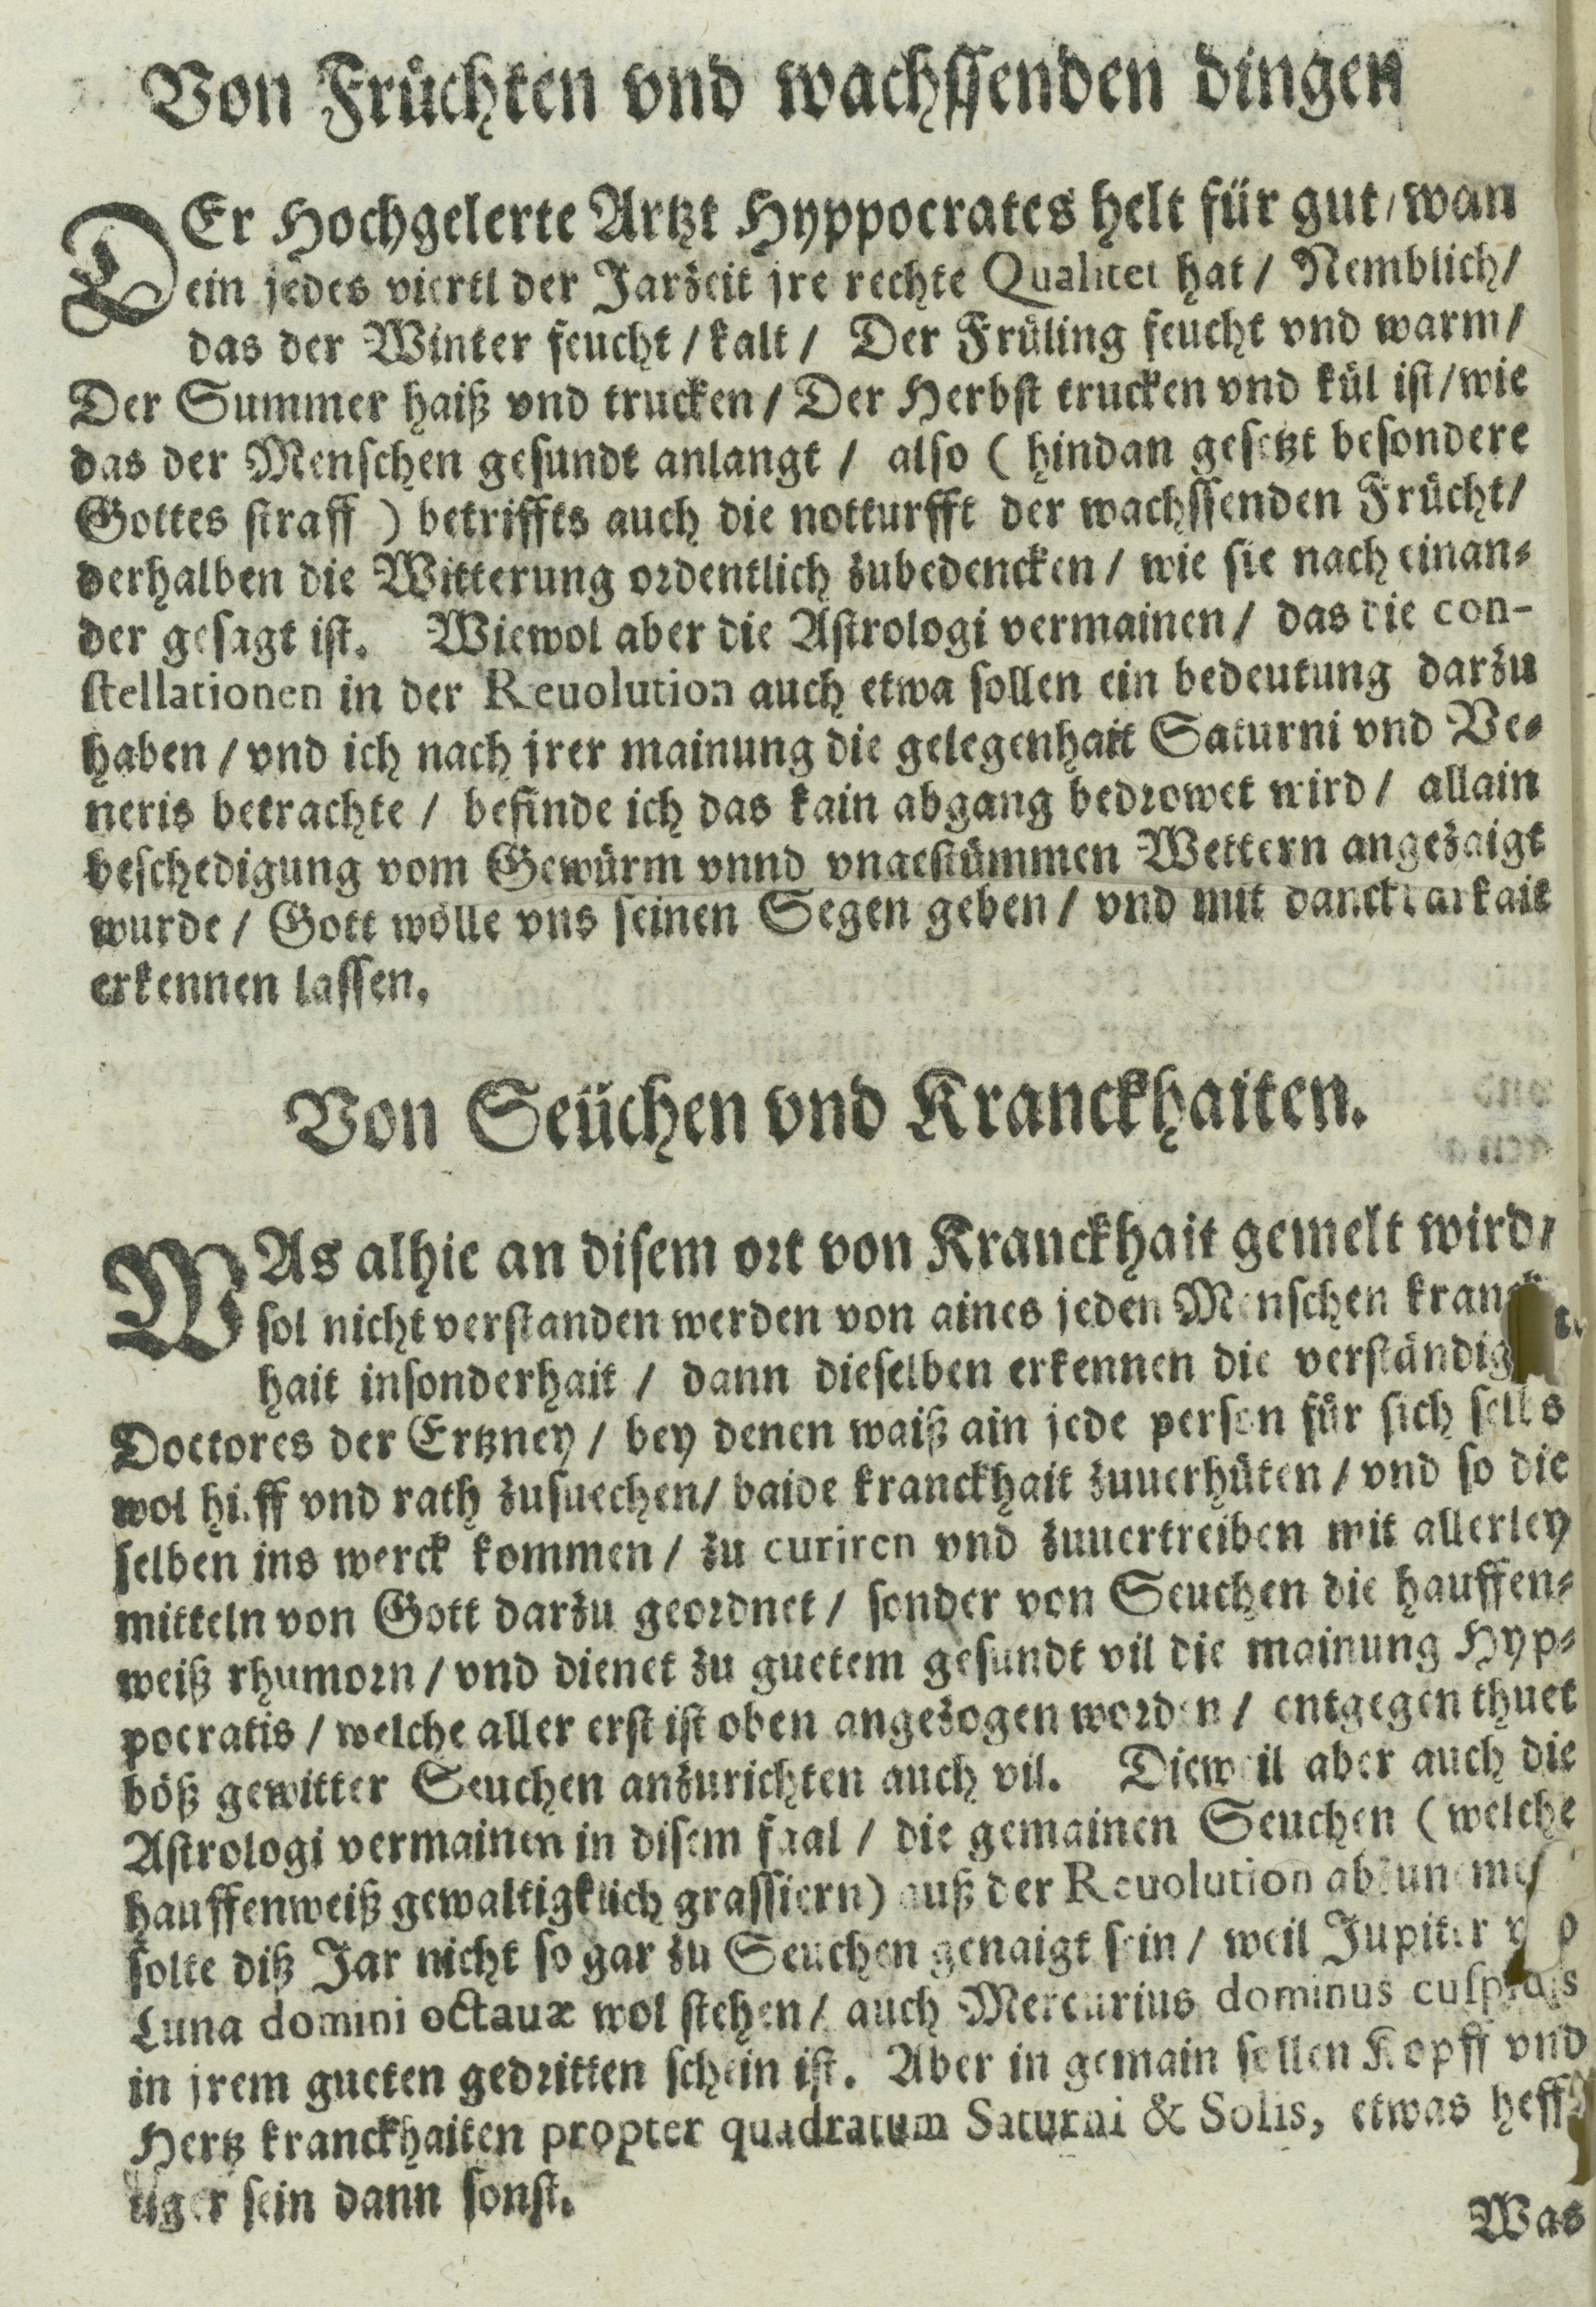 Von Früchten vnd wachssenden dingen
DEr Hochgelerte Artzt Hyppocrates helt für gut / wan
ein jedes viertl der Jarszeit jre rechte Qualitet hat / Nemblich /
das der Winter feucht / kalt / Der Früling feucht vnd warm /
Der Summer haiß vnd trucken / Der Herbst trucken vnd kül ist / wie
das der Menschen gesundt anlangt / also ( hindan gesetzt besondere
Gottes straff ) betriffts auch die notturfft der wachssenden Frücht /
derhalben die Witterung ordentlich zubedencken / wie sie nach einan-
der gesagt ist. Wiewol aber die Astrologi vermainen / das die con-
stellationen in der Reuolution auch etwa sollen ein bedeutung darzu
haben / vnd ich nach jrer mainung die gelegenhait Saturni vnd Ve-
neris betrachte / befinde ich das kain abgang bedrowet wird / allain
beschedigung vom Gewürm vnnd vngestümmen Wettern angezaigt
wurde / Gott wölle vns seinen Segen geben / vnd mit danckbarkait
erkennen lassen.
Von Seüchen vnd Kranckhaiten.
WAs alhie an disem ort von Kranckhait gemelt wird /
sol nicht verstanden werden von aines jeden Menschen kranck
hait insonderhait / dann dieselben erkennen die
Doctores der Ertzney / bey denen waiß ain jede person für sich selbs
wol hilff vnd rath zusuechen / baide kranckhait zuuerhüten / vnd so die
selben ins werck kommen / zu curiren vnd zuuertreiben mit allerley
mitteln von Gott darzu geordnet / sonder von Seuchen die hauffen-
weiß rhumorn / vnd dienet zu guetem gesundt vil die mainung Hyp-
pocratis / welche aller erst ist oben angezogen worden / entgegen thuet
böß gewitter Seuchen anzurichten auch vil. Dieweil aber auch die
Astrologi vermainen in disem faal / die gemainen Seuchen ( welche
hauffenweiß gewaltigklich grassiern ) auß der Reuolution
solte diß Jar nicht so gar zu Seuchen genaigt sein / weil Jupiter
Luna domini octauæ wol stehen / auch Mercurius dominus cuspidis
in jrem gueten gedritten schein ist. Aber in gemain sollen Kopff vnd
Hertz kranckhaiten propter quadratum Saturni & Solis, etwas heff-
tiger sein dann sonst.
Was